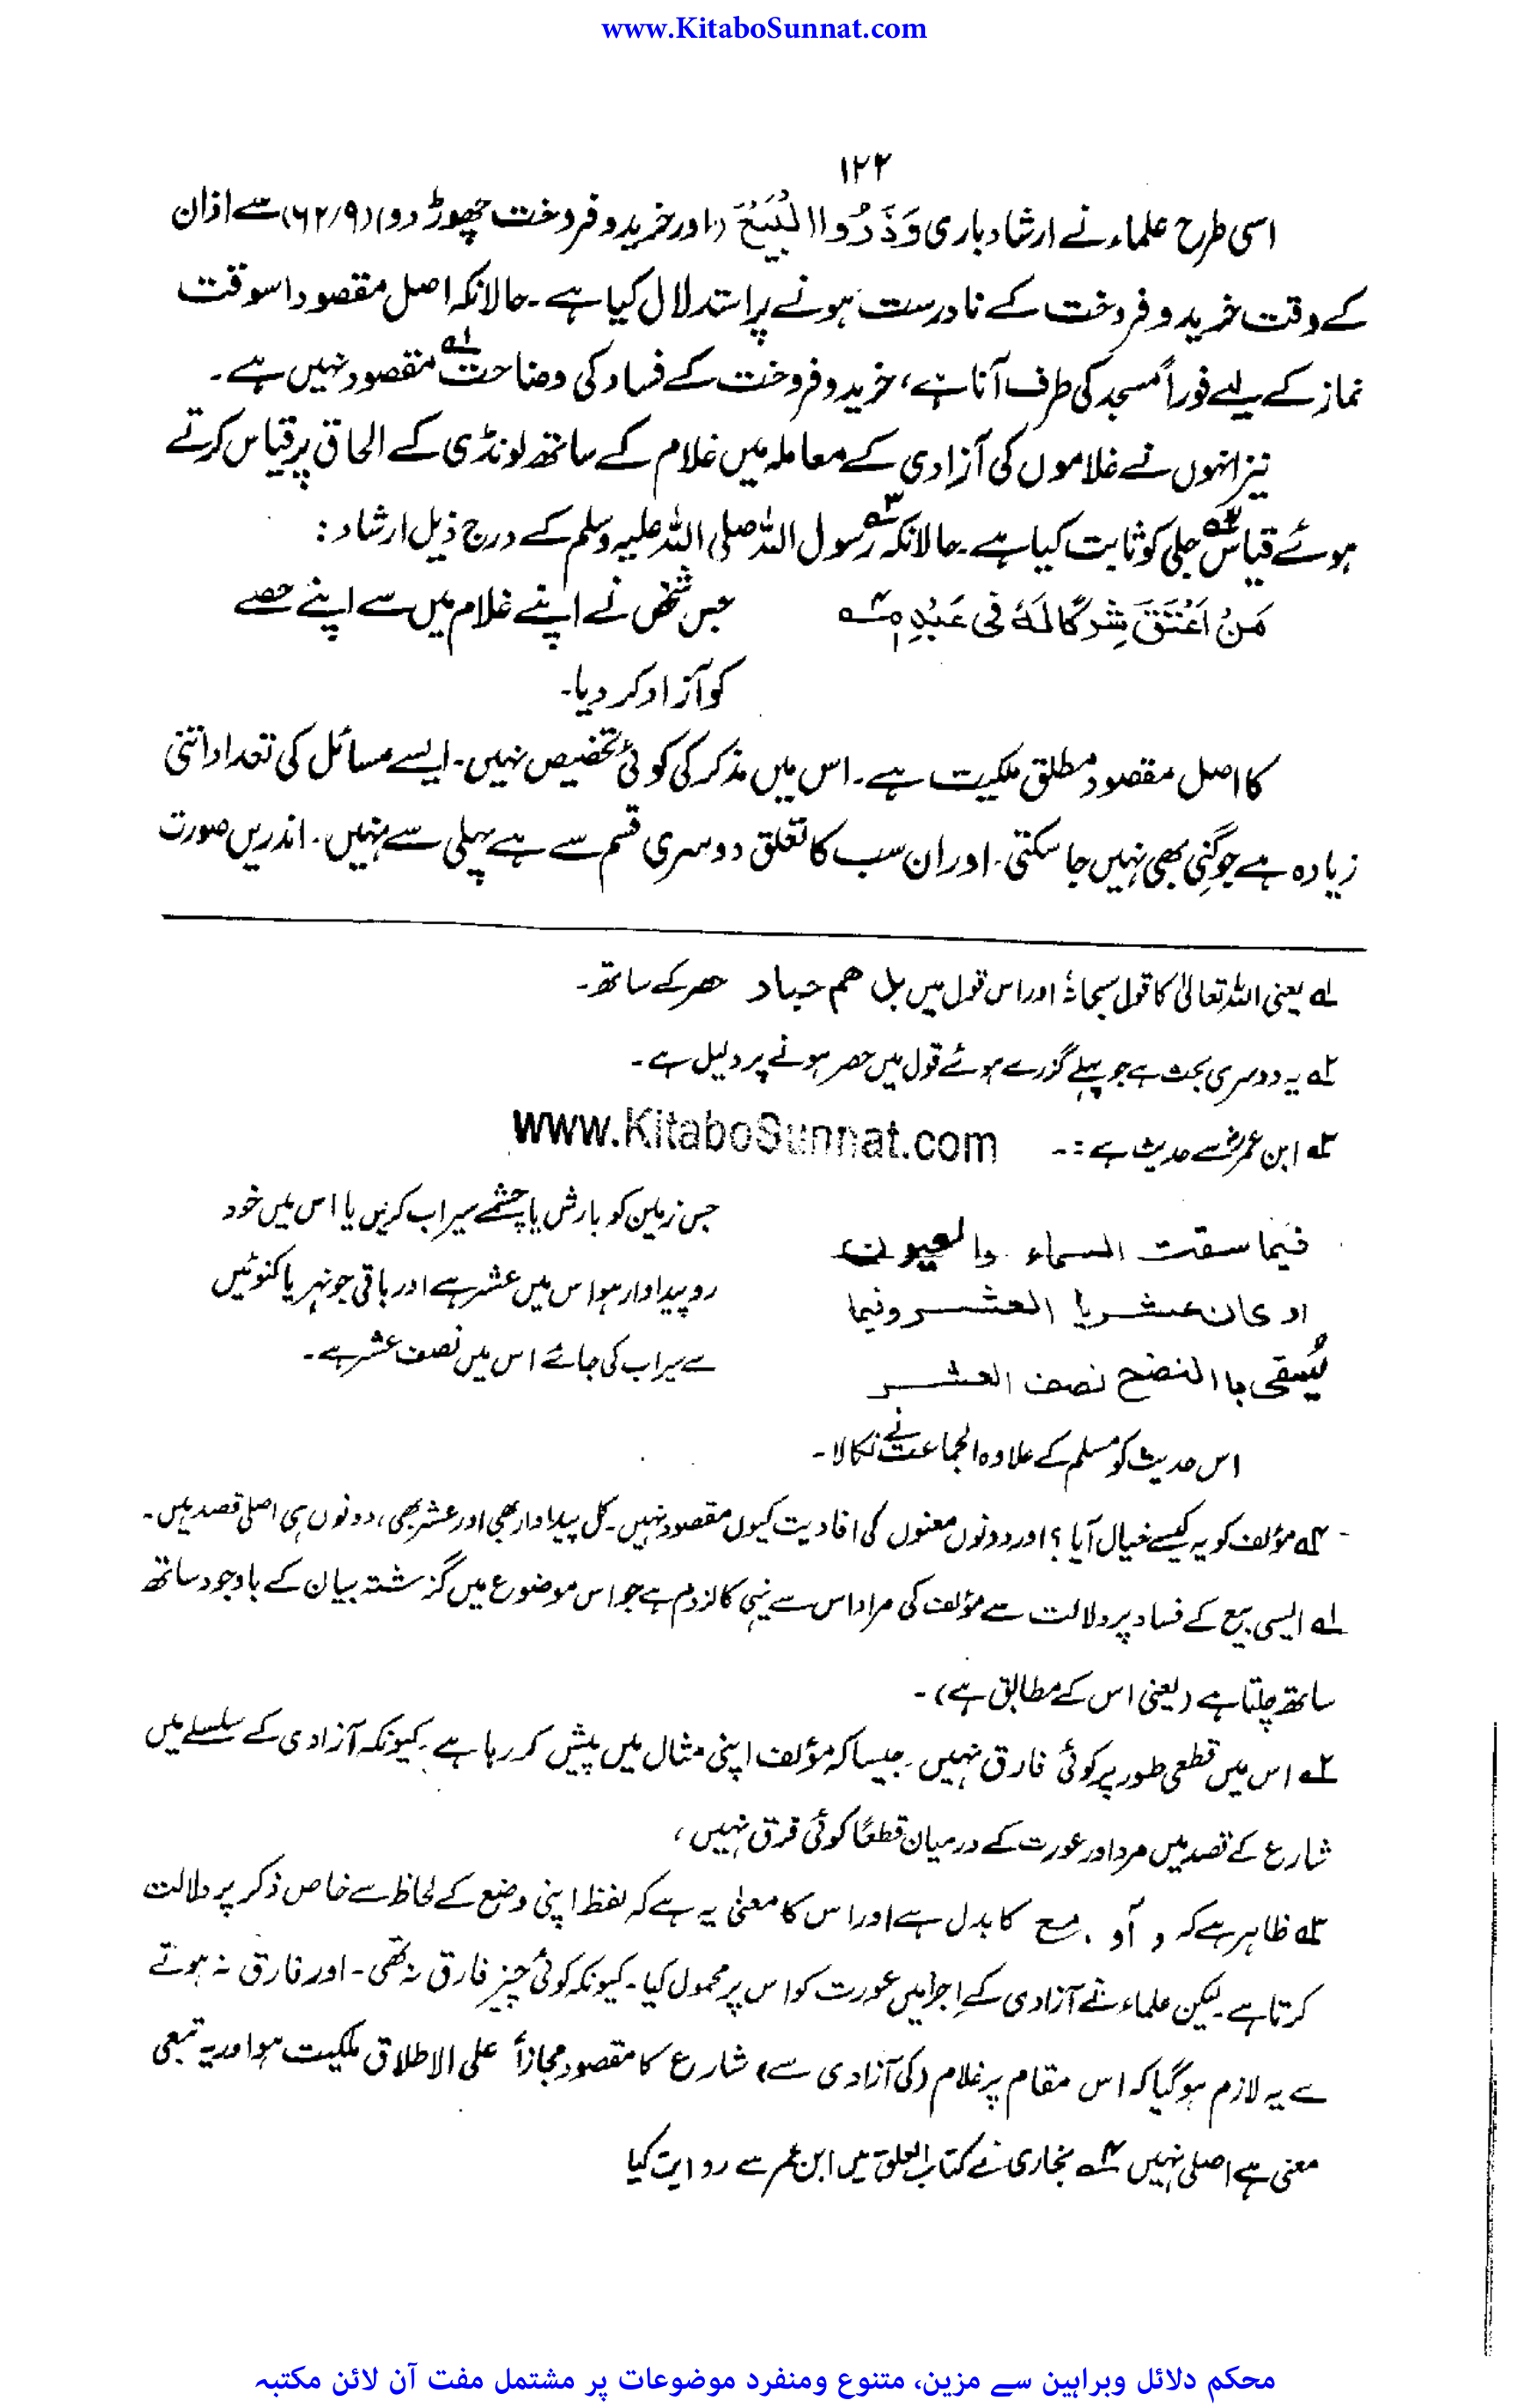 www.KitaboSunnat.com
۱۲۲
اسی طرح علماء نے ارشاد باری وَذَرُوا الْبَيْعَ (اور خرید و فروخت چھوڑ دو) (۶۲/۹) سے اذان
کے وقت خرید و فروخت کے نادرست ہونے پر استدلال کیا ہے۔ حالانکہ اصل مقصود اسوقت
نماز کے لیے فوراً مسجد کی طرف آنا ہے، خرید و فروخت کے فساد کی وضاحت ۱ے مقصود نہیں ہے۔
نیز انہوں نے غلاموں کی آزادی کے معاملہ میں غلام کے ساتھ لونڈی کے الحاق پر قیاس کرتے
ہوئے قیاس ۲ے جلی کو ثابت کیا ہے۔ حالانکہ ۳ے رسول اللہ صلی اللہ علیہ وسلم کے درج ذیل ارشاد:
مَنْ اَعْتَقَ شِرْكًا لَهٗ فِی عَبْدٍ ۴ے
جس شخص نے اپنے غلام میں سے اپنے حصے
کو آزاد کر دیا۔
کا اصل مقصود مطلق ملکیت ہے۔ اس میں مذکر کی کوئی تخصیص نہیں۔ ایسے مسائل کی تعداد اتنی
زیادہ ہے جو گنی بھی نہیں جا سکتی۔ اور ان سب کا تعلق دوسری قسم سے ہے پہلی سے نہیں۔ اندریں صورت
۱ے یعنی اللہ تعالیٰ کا قول سبحانہٗ اور اس قول میں بل هم عباد حصر کے ساتھ۔
۲ے یہ دوسری بحث ہے جو پہلے گزرے ہوئے قول میں حصر ہونے پر دلیل ہے۔
۳ے ابن عمرؓ سے حدیث ہے :۔
www.KitaboSunnat.com
فیما سقت السماء والعیون
جس زمین کو بارش یا چشمے سیراب کریں یا اس میں خود
او کان عشریا العشر وفیما
رو پیداوار ہو اس میں عشر ہے اور باقی جو نہر یا کنوئیں
یُسقی باالنضح نصف العشر
سے سیراب کی جائے اس میں نصف عشر ہے۔
اس حدیث کو مسلم کے علاوہ الجماعت نے نکالا۔
۴ے مؤلف کو یہ کیسے خیال آیا؟ اور دونوں معنوں کی افادیت کیوں مقصود نہیں۔ کل پیداوار بھی اور عشر بھی، دونوں ہی اصلی قصد ہیں۔
۱ے ایسی بیع کے فساد پر دلالت سے مؤلف کی مراد اس سے نہی کا لزوم ہے جو اس موضوع میں گزشتہ بیان کے باوجود ساتھ
ساتھ چلتا ہے (یعنی اس کے مطابق ہے)۔
۲ے اس میں قطعی طور پر کوئی فارق نہیں۔ جیسا کہ مؤلف اپنی مثال میں پیش کر رہا ہے۔ کیونکہ آزادی کے سلسلے میں
شارع کے قصد میں مرد اور عورت کے درمیان قطعاً کوئی فرق نہیں،
۳ے ظاہر ہے کہ و آو، مع کا بدل ہے اور اس کا معنیٰ یہ ہے کہ لفظ اپنی وضع کے لحاظ سے خاص ذکر پر دلالت
کرتا ہے۔ لیکن علماء نے آزادی کے اِجرا میں عورت کو اس پر محمول کیا۔ کیونکہ کوئی چیز فارق نہ تھی۔ اور فارق نہ ہوتے
سے یہ لازم ہوگیا کہ اس مقام پر غلام (کی آزادی سے) شارع کا مقصود مجازاً علی الاطلاق ملکیت ہوا اور یہ تبعی
معنی ہے اصلی نہیں ۴ے بخاری نے کتاب العلق میں ابن عمر سے روایت کیا
محکم دلائل وبراہین سے مزین، متنوع ومنفرد موضوعات پر مشتمل مفت آن لائن مکتبہ